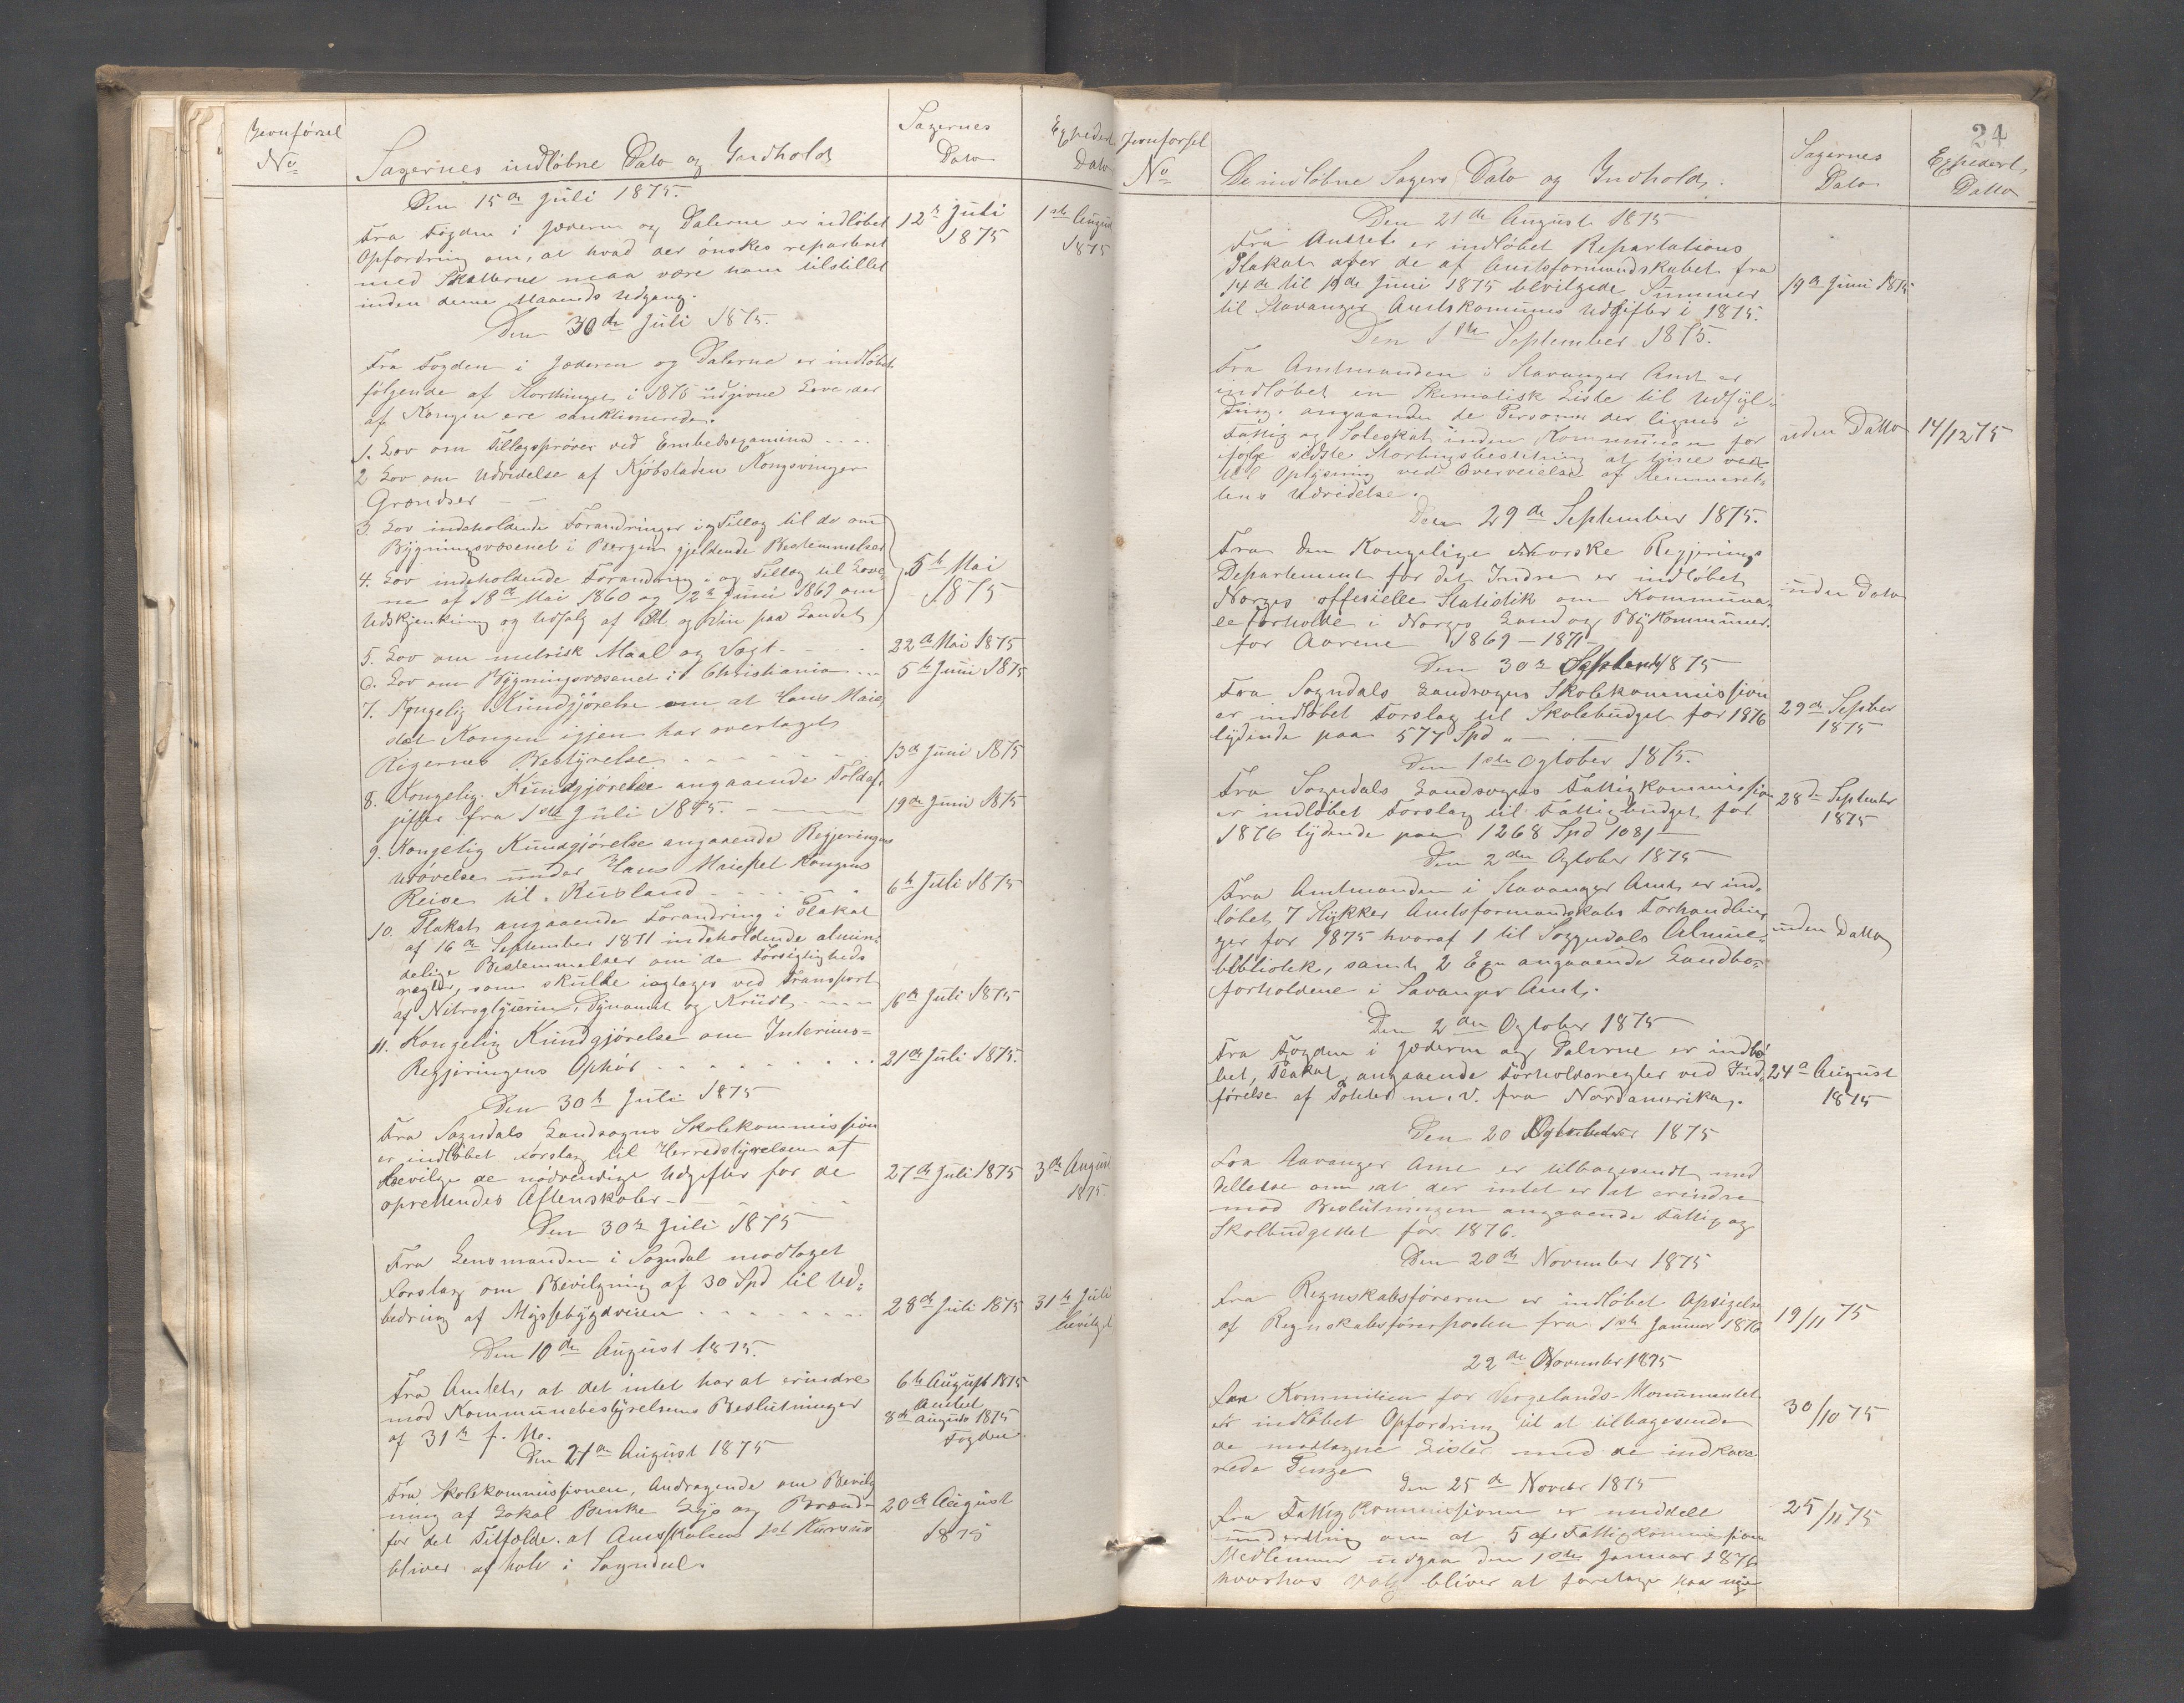 Jevnførsel
No
Sagernes indløbne Dato og Indhold
Sagernes
Dato
Expedert
Dato
Den 15de Juli 1875.
Fra Fogden i Jæderen og Dalerne er indløbet
Opfordring om, at hvad der ønskes repartert
med Skatterne maa være ham tilstillet
inden denne Maaneds Udgang.
12te Juli
1875
1ste August
1875
Den 30de Juli 1875.
Fra Fogden i Jæderen og Dalerne er indløbet
følgende af Storthinget i 1875 udgivne Love, der
af Kongen ere sanktionerede.
1. Lov om Tillægsprøver ved Embedsexamina
2 Lov om Udvidelse af Kjøbstaden Kongsvinger
Grændser
3. Lov indeholdende Forandringer i og Tillæg til de om
Bygningsvæsenet i Bergen gjeldende Bestemmelser
4. Lov indeholdende Forandring i og Tillæg til Love-
ne af 18de Mai 1860 og 12te Juni 1869 om
Udskjenkning og Udsalg af Øl og Vin paa Landet
5te Mai
1875
5. Lov om metrisk Maal og Vægt
22de Mai 1875
6. Lov om Bygningsvæsenet i Christiania
5te Juni 1875
7. Kongelig Kundgjørelse om at Hans Maie
stæt Kongen igjen har overtaget
Rigernes Bestyrelse
13de Juni 1875
8. Kongelig Kundgjørelse angaaende Toldaf-
gifter fra 1ste Juli 1875.
19de Juni 1875
9. Kongelig Kundgjørelse angaaende Regjeringens
Udøvelse under Hans Maiestet Kongens
Reise til Rusland
6te Juli 1875
10. Plakat angaaende Forandring i Plakat
af 16de September 1871 indeholdende almin-
delige Bestemmelser om de Forsigtigheds
regler, som skulle iagtages ved Transport
af Nitroglyserin, Dynamit og Krudt
6te Juli 1875
11. Kongelig Kundgjørelse om Interims-
Regjeringens Ophør
21de Juli 1875.
Den 30te Juli 1875
Fra Sogndals Landsogns Skolekommission
er indløbet Forslag til Herredstyrelsen at
bevilge de nødvendige Udgifter for de
oprettendes Aftenskoler
27de Juli 1875
3de August
1875.
Den 30te Juli 1875
Fra Lensmanden i Sogndal modtaget
Forslag om Bevilgning af 30 Spd til Ud-
bedring af Myssebygdveien
28de Juli 1875
31te Juli
bevilget
Den 10de August 1875.
Fra Amtet, at det intet har at erindre
mod Kommunebestyrelsens Beslutninger
af 31te f. M.
6te August 1875
Amtet
8de August 1875
Fogden
Den 21de August 1875
Fra Skolekommissionen, Andragende om Bevilg
ning af Lokal Benke Lys og Brænde
for det Tilfælde at Amtsskolens 1st Kursus
bliver afholt i Sogndal.
20de August
1875
24
Jevnførsel
No
De indløbne Sagers Dato og Indhold.
Sagernes
Dato
Expedert
Datto
Den 21de August 1875
Fra Amtet er indløbet Repartations
Plakat over de af Amtsformandskabet fra
14de til 19de Juni 1875 bevilgede Summer
til Stavanger Amtskomunes Udgifter i 1875.
19de Juni 1875
Den 1ste September 1875.
Fra Amtmanden i Stavanger Amt er
indløbet en Skematisk Liste til Udfyl-
ding angaaende de Personer der lignes i
Fattig og Skoleskat inden Kommunen for
ifølge sidste Stortingsbeslutning at tjene ved
til Oplysning ved Overveielse af Stemmeret-
tens Udvidelse.
uden Datto
14/12 75
Den 29de September 1875.
Fra den Kongelige Norske Regjerings
Departement for det Indre er indløbet
Norges offesielle Statistik om Kommuna-
le Forholde i Norges Land og By Kommuner
for Aarene 1869 - 1871
uden Dato
Den 30te September 1875
Fra Sogndals Landsogns Skolekommission
er indløbet Forslag til Skolebudget for 1876
lydende paa 577 Spd
29de Septber
1875
Den 1ste Ogtober 1875.
Fra Sogndals Landsogns Fattigkommission
er indløbet Forslag til Fattigbudget for
1876 lydende paa 1268 Spd 108/
28de September
1875
Den 2den Ogtober 1875
Fra Amtmanden i Stavanger Amt er ind-
løbet 7 Stykker Amtsformandskabs Forhandlin-
ger for 1875 hvoraf 1 til Soggndals Almue-
bibliotek, samt 2 Exp angaaende Landbo-
forholdene i Savanger Amt.
uden Datto
Den 2den Ogtober 1875
Fra Fogden i Jæderen og Dalerne er indlø
bet, Plakat angaaende Forholdsregler ved Ind-
førelse af Poteter m. v. fra Nordamerika.
24de August
1875
Den 20 Ogtober 1875
Fra Stavanger Amt er tilbagesendt med
dellelse om, at der intet er at erindre
mod Beslutningen angaaende Fattig og
Skolbudgettet for 1876.
Den 20de November 1875
Fra Regnskabsføreren er indløbet Opsigelse
af Regnskabsførerposten fra 1ste Januar 1876
19/11 75
22de November 1875
Fra Kommitien for Vergelands-Monumentet
er indløbet Opfordring til at tilbagesende
de modtagne Lister med de indkasse
rede Penge
30/10 75
Den 25de Novebr 1875
Fra Fattig Kommissionen er meddelt
underetning om at 5 af Fattigkommissionens
Medlemmer udgaa den 1ste Januar 1876
hvorhos Valg bliver at foretage paa nye
25/11 75